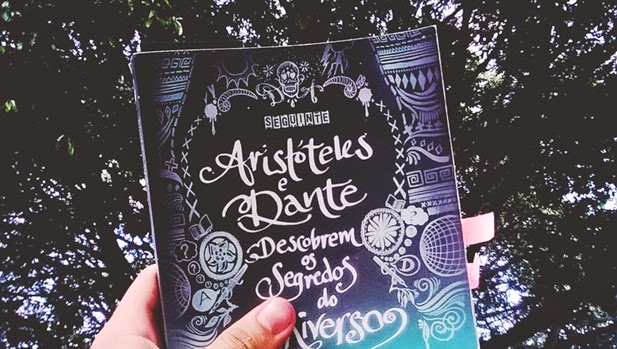 SEGUINTE
Aristóteles
e
Dante
Descobrem
os
Segredos
do
iverso